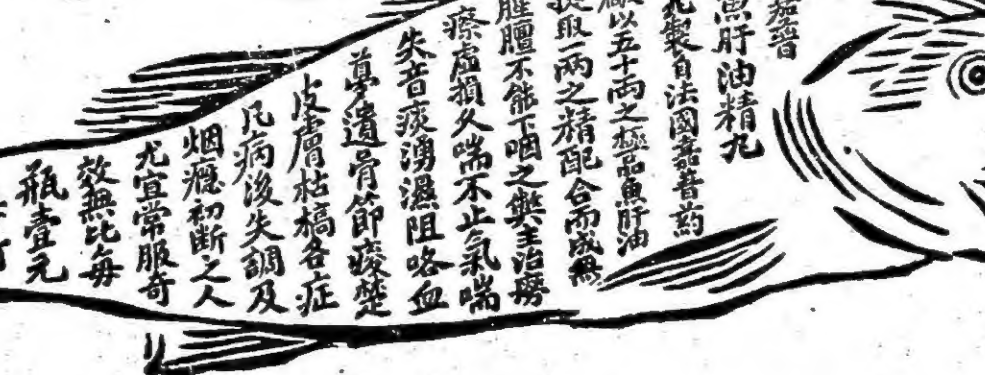 嘉普
魚肝油精丸
丸製自法國嘉普葯
廠以五十両之極品魚肝油
提取一両之精配合而成無
腥膻不能下咽之弊主治癆
瘵虛損久喘不止氣喘
失音痰湧濕阻咯血
夢遺骨節痠楚
皮膚枯槁各症
凡病後失調及
烟癮初斷之人
尤宜常服奇
效無比每
瓶壹元